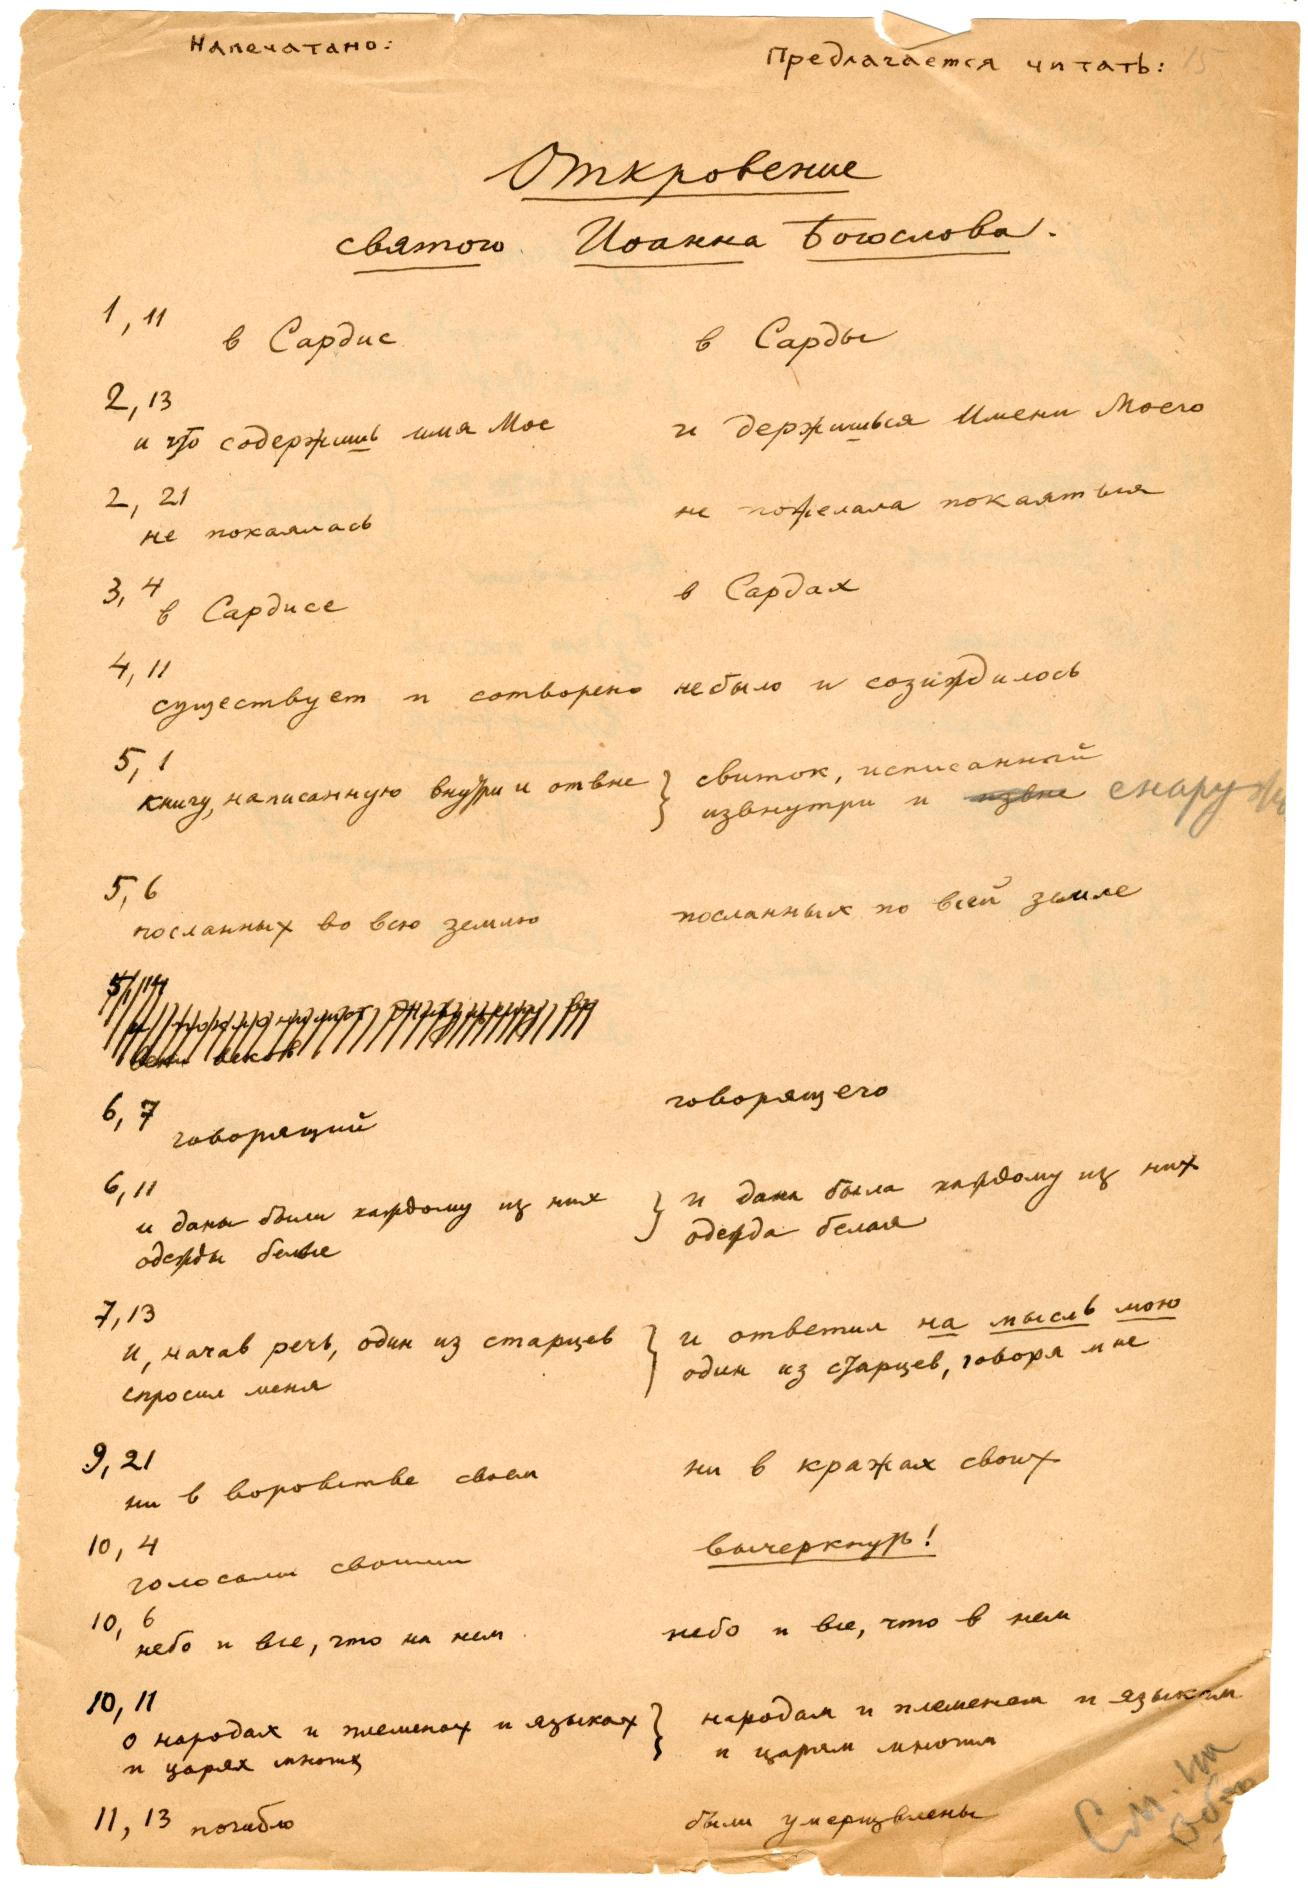 Напечатано: Предлагается читать: 15
Откровение
святого Иоанна Богослова.
1, 11
в Сардис в Сарды
2, 13
и что содержишь имя Мое и держишься Имени Моего
2, 21
не покаялась не пожелала покаяться
3, 4
в Сардисе в Сардах
4, 11
существует и сотворено небыло и созиждилось
5, 1
книгу, написанную внутри и отвне } свиток, исписанный
извнутри и извне снаружи
5, 6
посланных во всю землю посланных по всей земле
5, 14
и поклонились Живущему во
веки веков
6, 7
говорящий говорящего
6, 11
и даны были каждому из них } и дана была каждому из них
одежды белые одежда белая
7, 13
и, начав речь, один из старцев } и ответил на мысль мою
спросил меня один из старцев, говоря мне
9, 21
ни в воровстве своем ни в кражах своих
10, 4
голосами своими вычеркнуть!
10, 6
небо и все, что на нем небо и все, что в нем
10, 11
о народах и племенах и языках } народам и племенам и языкам
и царях многих и царям многим
11, 13 погибло были умерщвлены
См. на
обор.